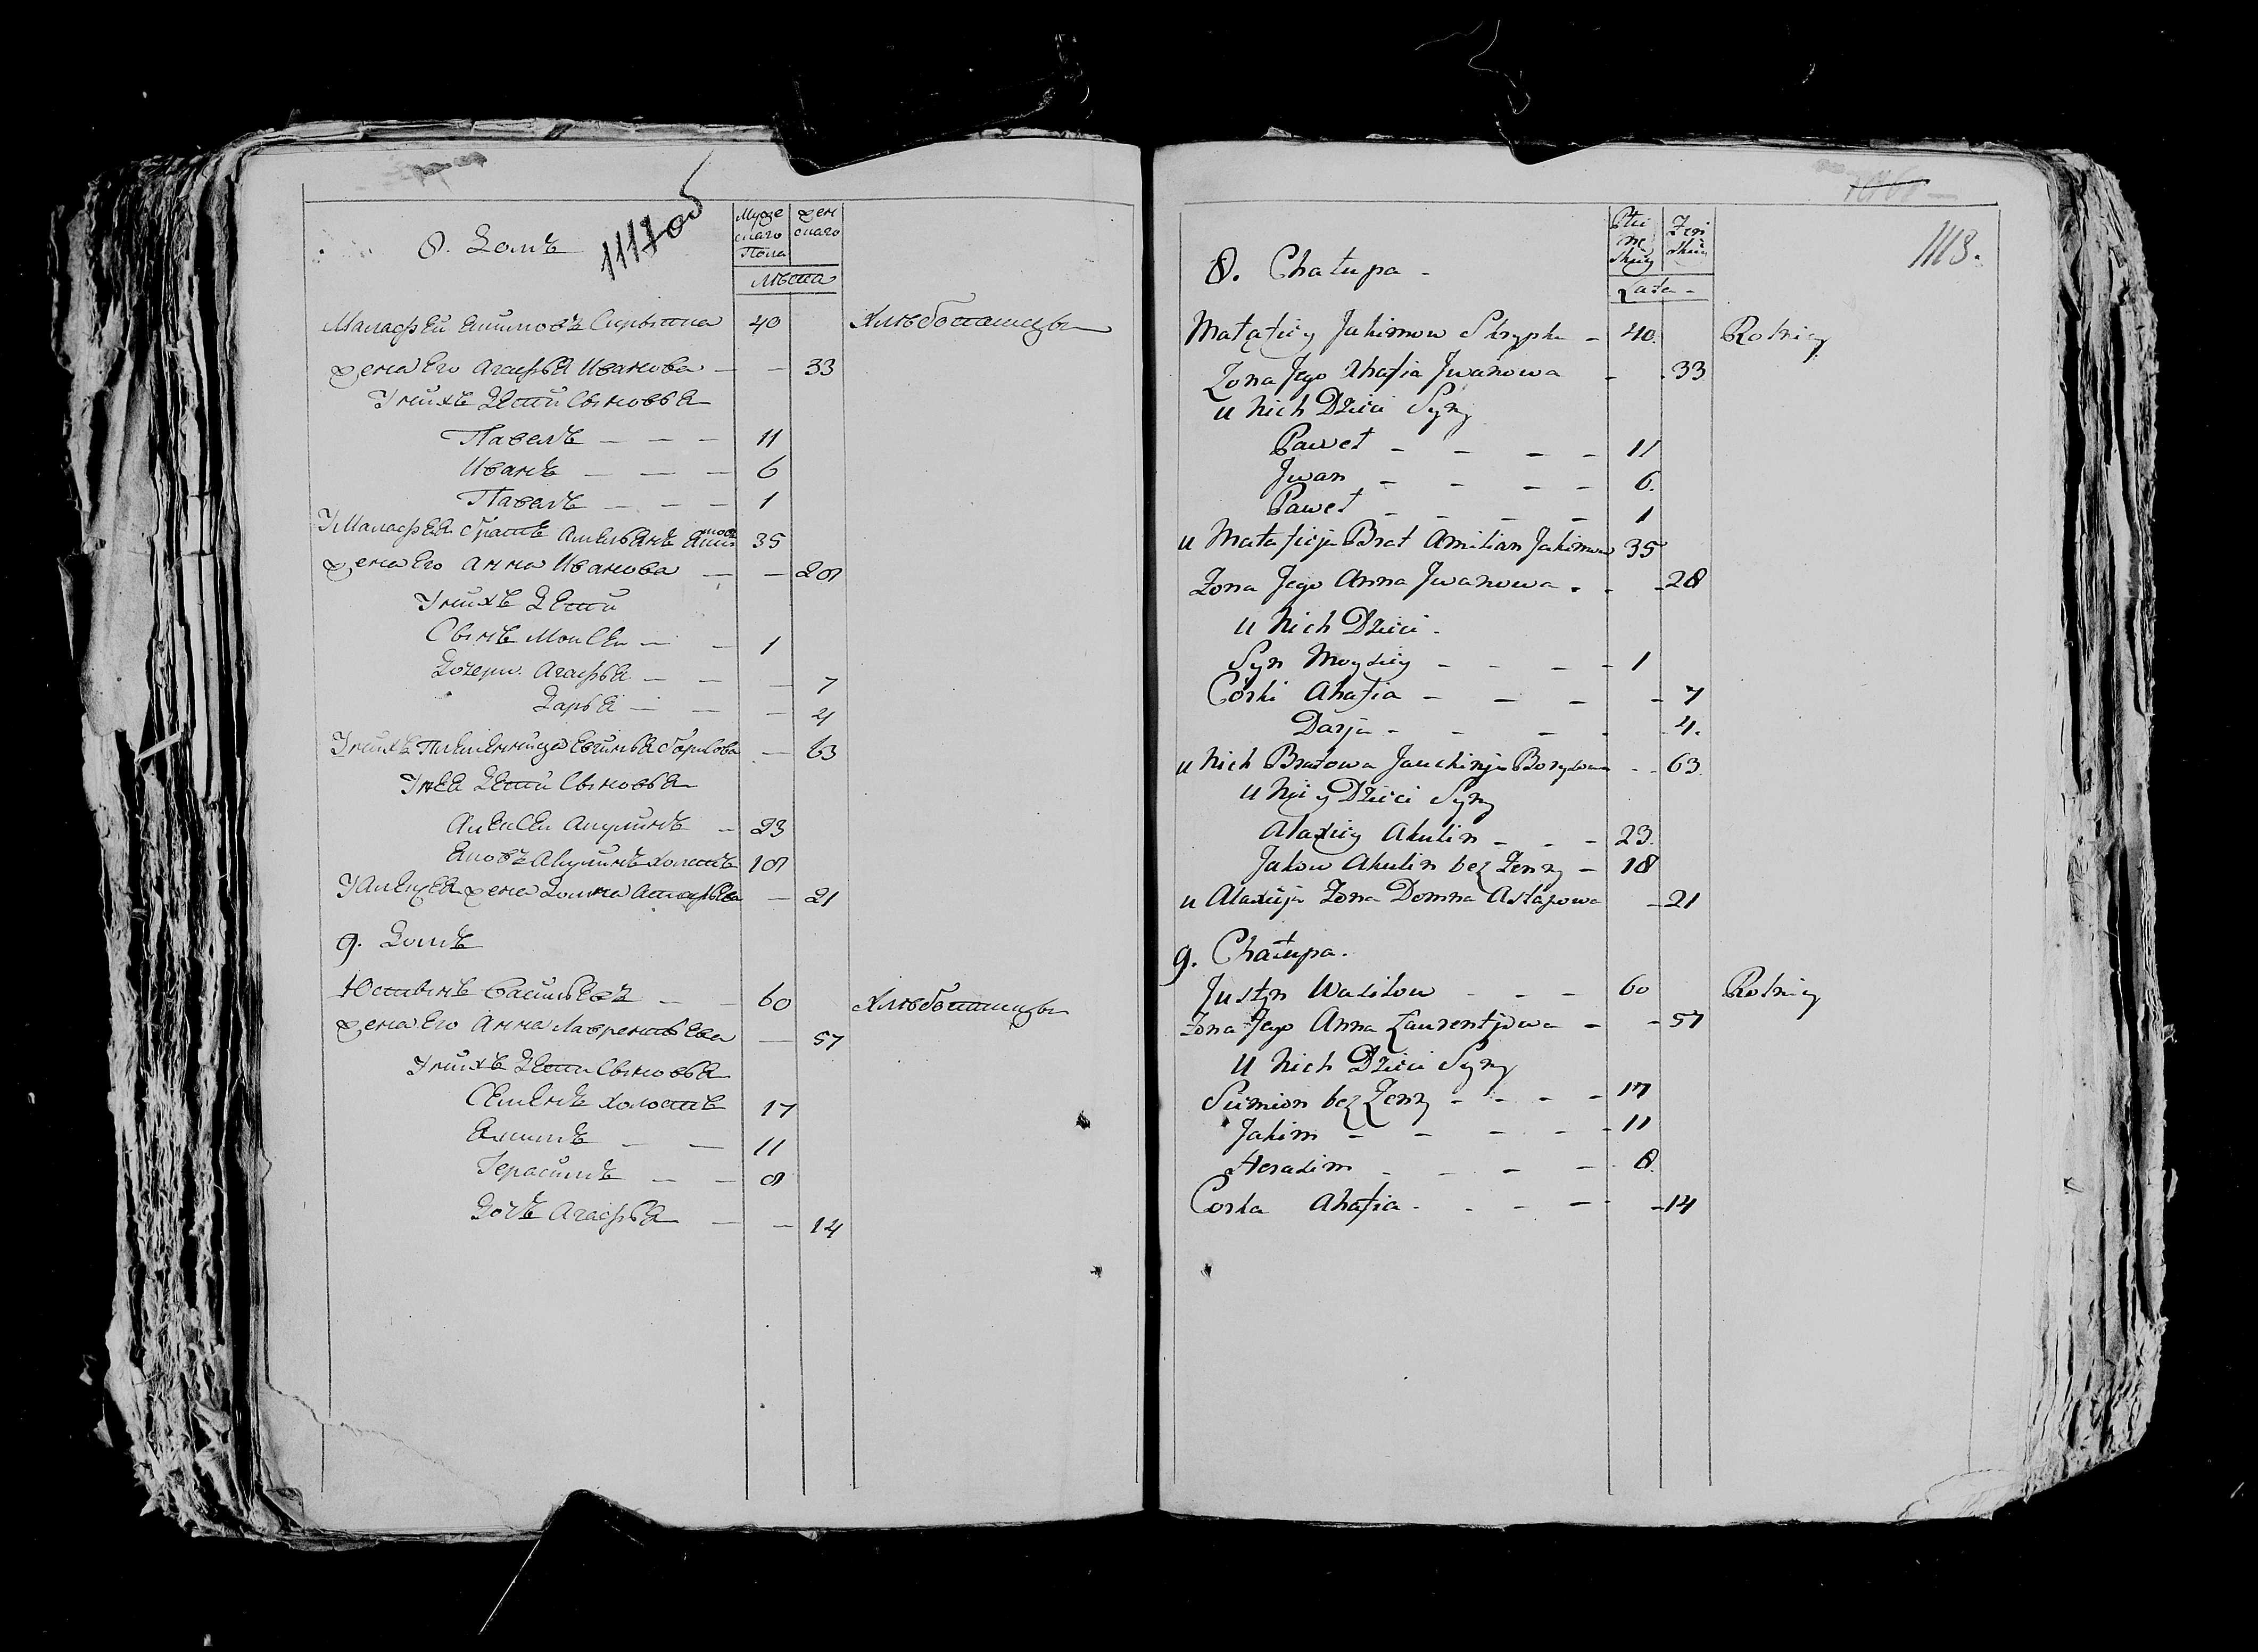 1117 об
8. Домъ
Мужескаго Пола
женскаго
Лѣта
Малафѣй Якимовъ Скрыпка 40 Хлѣбопашцы
жена Его Агафья Иванова — — 33
У нихъ Дѣти Сыновья
Павелъ — — — 11
Иванъ — — — 6
Павелъ — — — 1
У Малафѣя братъ Амельянъ Якимовъ 35
жена Его Анна Иванова — — 28
У нихъ Дѣти
Сынъ Моисей — — 1
Дочери Агафья — — — 7
Дарья — — — 4
У нихъ Племянница Евгинья Борисова — 63
У нея Дѣти Сыновья
Алексей Акулинъ — 23
Яковъ Акулинъ холостъ 18
У Алексея жена Домна Астафьева — 21
9. Домъ
Юстинъ Васильевъ — — 60 Хлѣбопашцы
жена Его Анна Лаврентьева — 57
У нихъ Дѣти Сыновья
Семенъ холостъ 17
Якимъ — — 11
Герасимъ — — 8
Дочь Агафья — — 14
1118.
8. Chałupa -
Płci męskiey
Żeńskiey
Lata -
Małafiey Jakimow Skrypka - 40. Rolnicy
Żona Jego Ahafia Jwanowa - - 33
u Nich Dzieci Syny
Paweł - - - - 11
Jwan - - - - 6.
Paweł - - - - 1
u Małafieja Brat Amilian Jakimow 35
Żona Jego Anna Jwanowa - - - 28
u Nich Dzieci -
Syn Moysiey - - - - 1
Córki Ahafia - - - - 7
Darja - - - - 4.
u Nich Bratowa Jauchinja Borysowa - - 63.
u Niey Dzieci Syny
Alaxiey Akulin - - - 23.
Jakow Akulin bez Żeny - 18
u Alaxieja Żona Domna Astafowa - 21
9. Chałupa.
Justyn Wasilow - - - 60 Rolnicy
Żona Jego Anna Laurentjowa - - 57
U Nich Dzieci Syny
Siemion bez Żeny - - - - 17
Jakim - - - - - 11
Herasim - - - - 8.
Corka Ahafia - - - - - 14